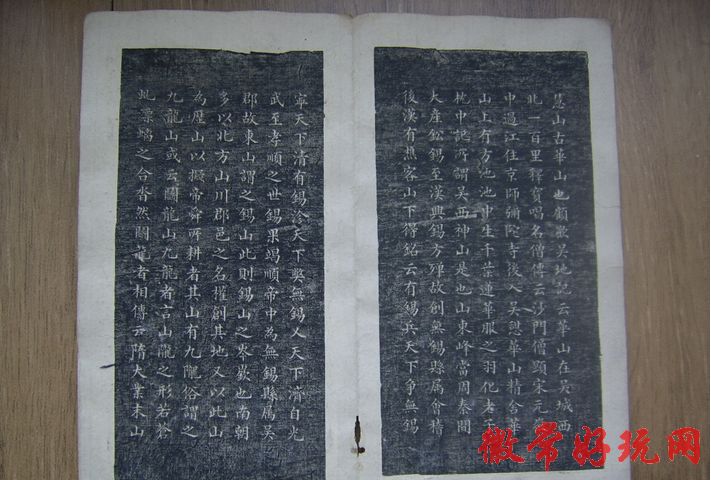 慧山古華山也顧歡吳地記云華山在吳城西
北一百里釋寶唱名僧傳云沙門僧顯宋元
中過江住京師彌陀寺後入吳憩華山精舍華
山上有方池池中生千葉蓮華服之羽化老
枕中記所謂吳西神山是也山東峰當周秦間
大產鈆錫至漢興錫方殫故創無錫縣屬會稽
後漢有樵客山下得銘云有錫兵天下爭無錫
寧天下清有錫沴天下弊無錫乂天下濟自光
武至孝順之世錫果竭順帝中為無錫縣屬吳
郡故東山謂之錫山此則錫山之岑嶔也南朝
多以北方山川郡邑之名權創其地又以此山
為歷山以擬帝舜所耕者其山有九隴俗謂之
九龍山或云鬭龍山九龍者言山隴之形若蒼
虬縹螭之合沓然鬭龍者相傳云隋大業末山
徽常好玩网